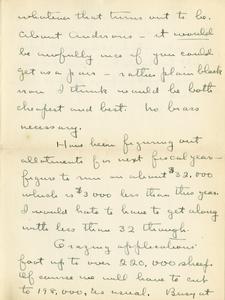 whatever that turns out to be.
About andirons - it would
be awfully nice if you could
get us a pair - rather plain black
iron I think would be both
cheapest and best. No brass
necessary.
Have been figuring out
allotments for next fiscal year -
figure to run on about $32,000
which is $3000 less than this year.
I would hate to have to get along
with less than 32 though.
Grazing applications
foot up to over 220,000 sheep.
Of course we will have to cut
to 198,000, as usual. Busy at